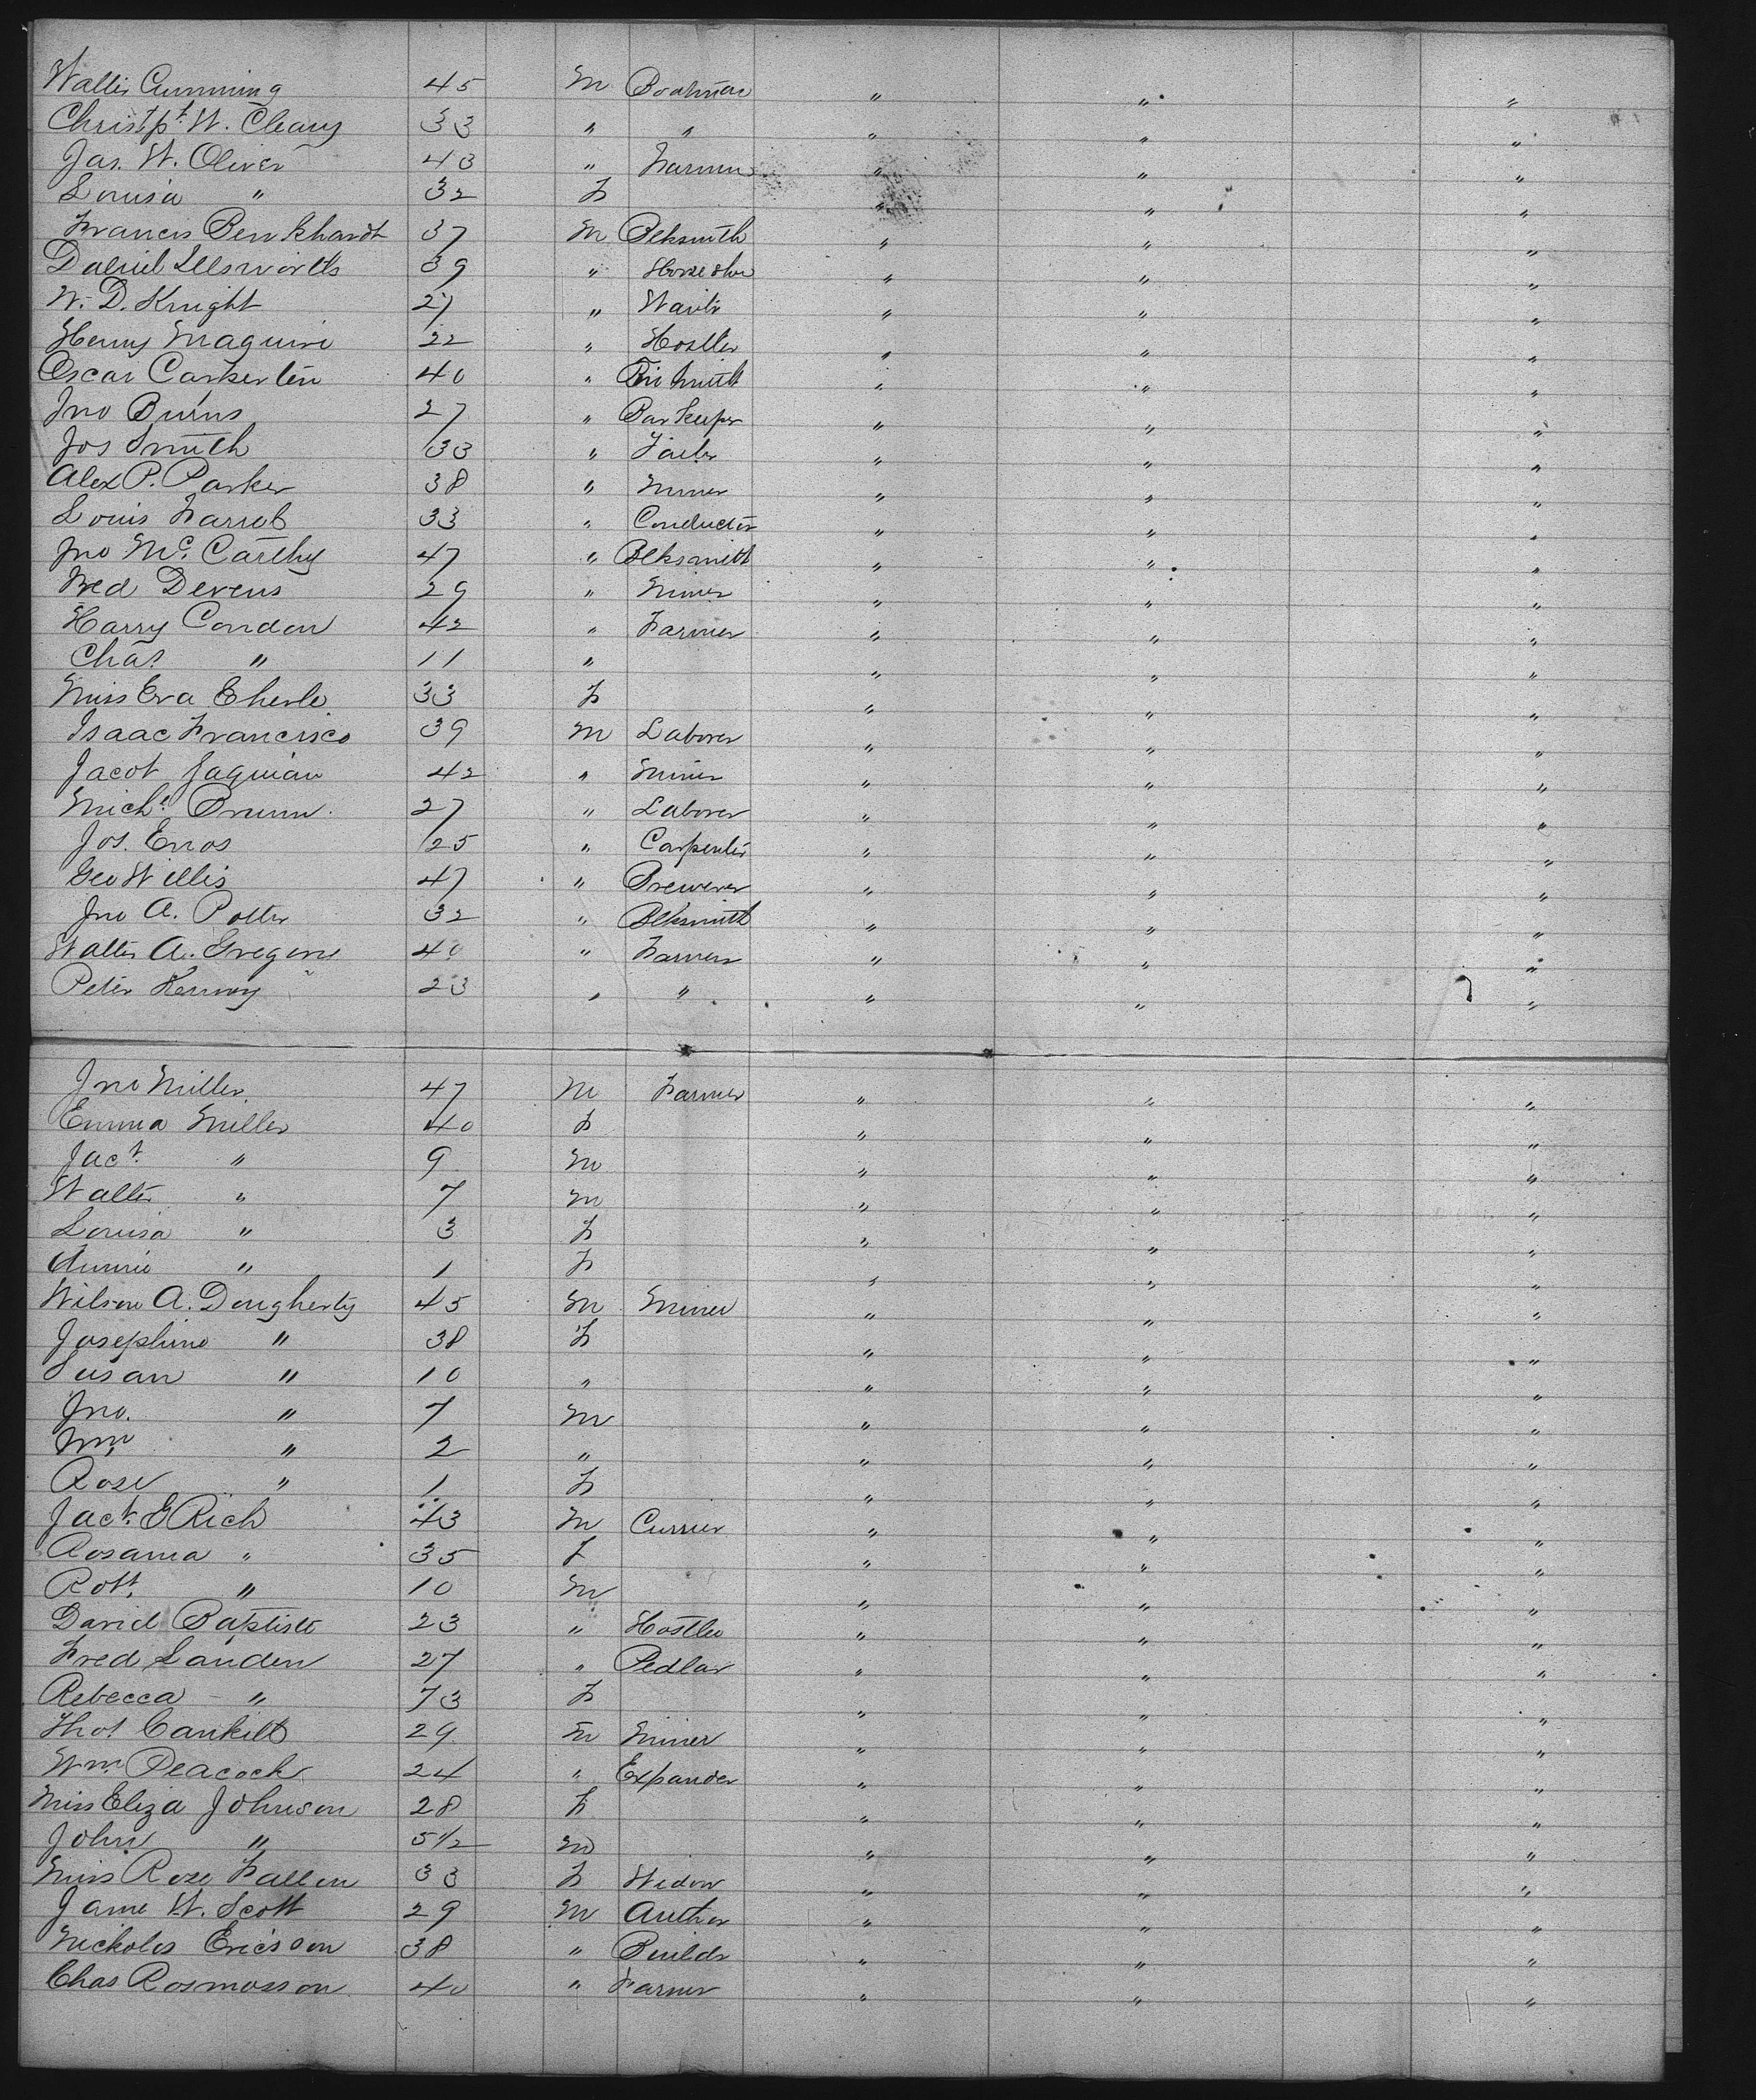 Wallis Cumming 45 M Boatman " " "
Christpr. W. Cleary 33 " " " " "
Jas. W. Oliver 43 " Farmer " " "
Louisa " 32 F " " "
Francis Benkhardt 37 M Blksmith " " "
Daniel Ellsworth 39 " Horse shoe " " "
W. D. Knight 27 " Waiter " " "
Henry Maguire 22 " Hostler " " "
Oscar Carkerlin 40 " Tin Smith " " "
Jno Burns 27 " Bar Keeper " " "
Jos Smith 33 " Tailor " " "
Alex P. Parker 38 " Miner " " "
Louis 33 " Conductor " " "
Jno Mc. Carthy 47 " Blksmith " " "
Fred Devens 29 " Miner " " "
Harry Condon 42 " Farmer " " "
Chas. " 11 " " " "
Miss Eva Eherle 33 F " " "
Isaac Francisco 39 M Laborer " " "
Jacob Jaquian 42 " Miner " " "
Michl. 27 " Laborer " " "
Jos. Enos 25 " Carpenter " " "
Geo Willis 47 " Brewer " " "
Jno A. Potter 32 " Blksmith " " "
Walter A. Gregory 40 " Farmer " " "
Peter 23 " " " " "
Jno Miller 47 M Farmer " " "
Emma Miller 40 F " " "
Jacb. " 9 M " " "
Walter " 7 M " " "
Louisa " 3 F " " "
Annie " 1 F " " "
Wilson A. Dougherty 45 M Miner " " "
Josephine " 38 F " " "
Susan " 10 " " " "
Jno. " 7 M " " "
Wm " 2 " " " "
Rose " 1 F " " "
Jacb. G Rich 43 M Currier " " "
Rosanna " 35 F " " "
Robt. " 10 M " " "
David Baptiste 23 " Hostler " " "
Fred Landen 27 " Pedlar " " "
Rebecca " 73 F " " "
Thos Cankilt 29 M Miner " " "
Wm. Peacock 24 " Expander " " "
Miss Eliza Johnson 28 F " " "
John " 5 1/2 M " " "
Miss Rose Fallon 33 F Widow " " "
Jame W. Scott 29 M Author " " "
Nickolas Ericsson 38 " Builder " " "
Chas Rosmosson 40 " Farmer " " "